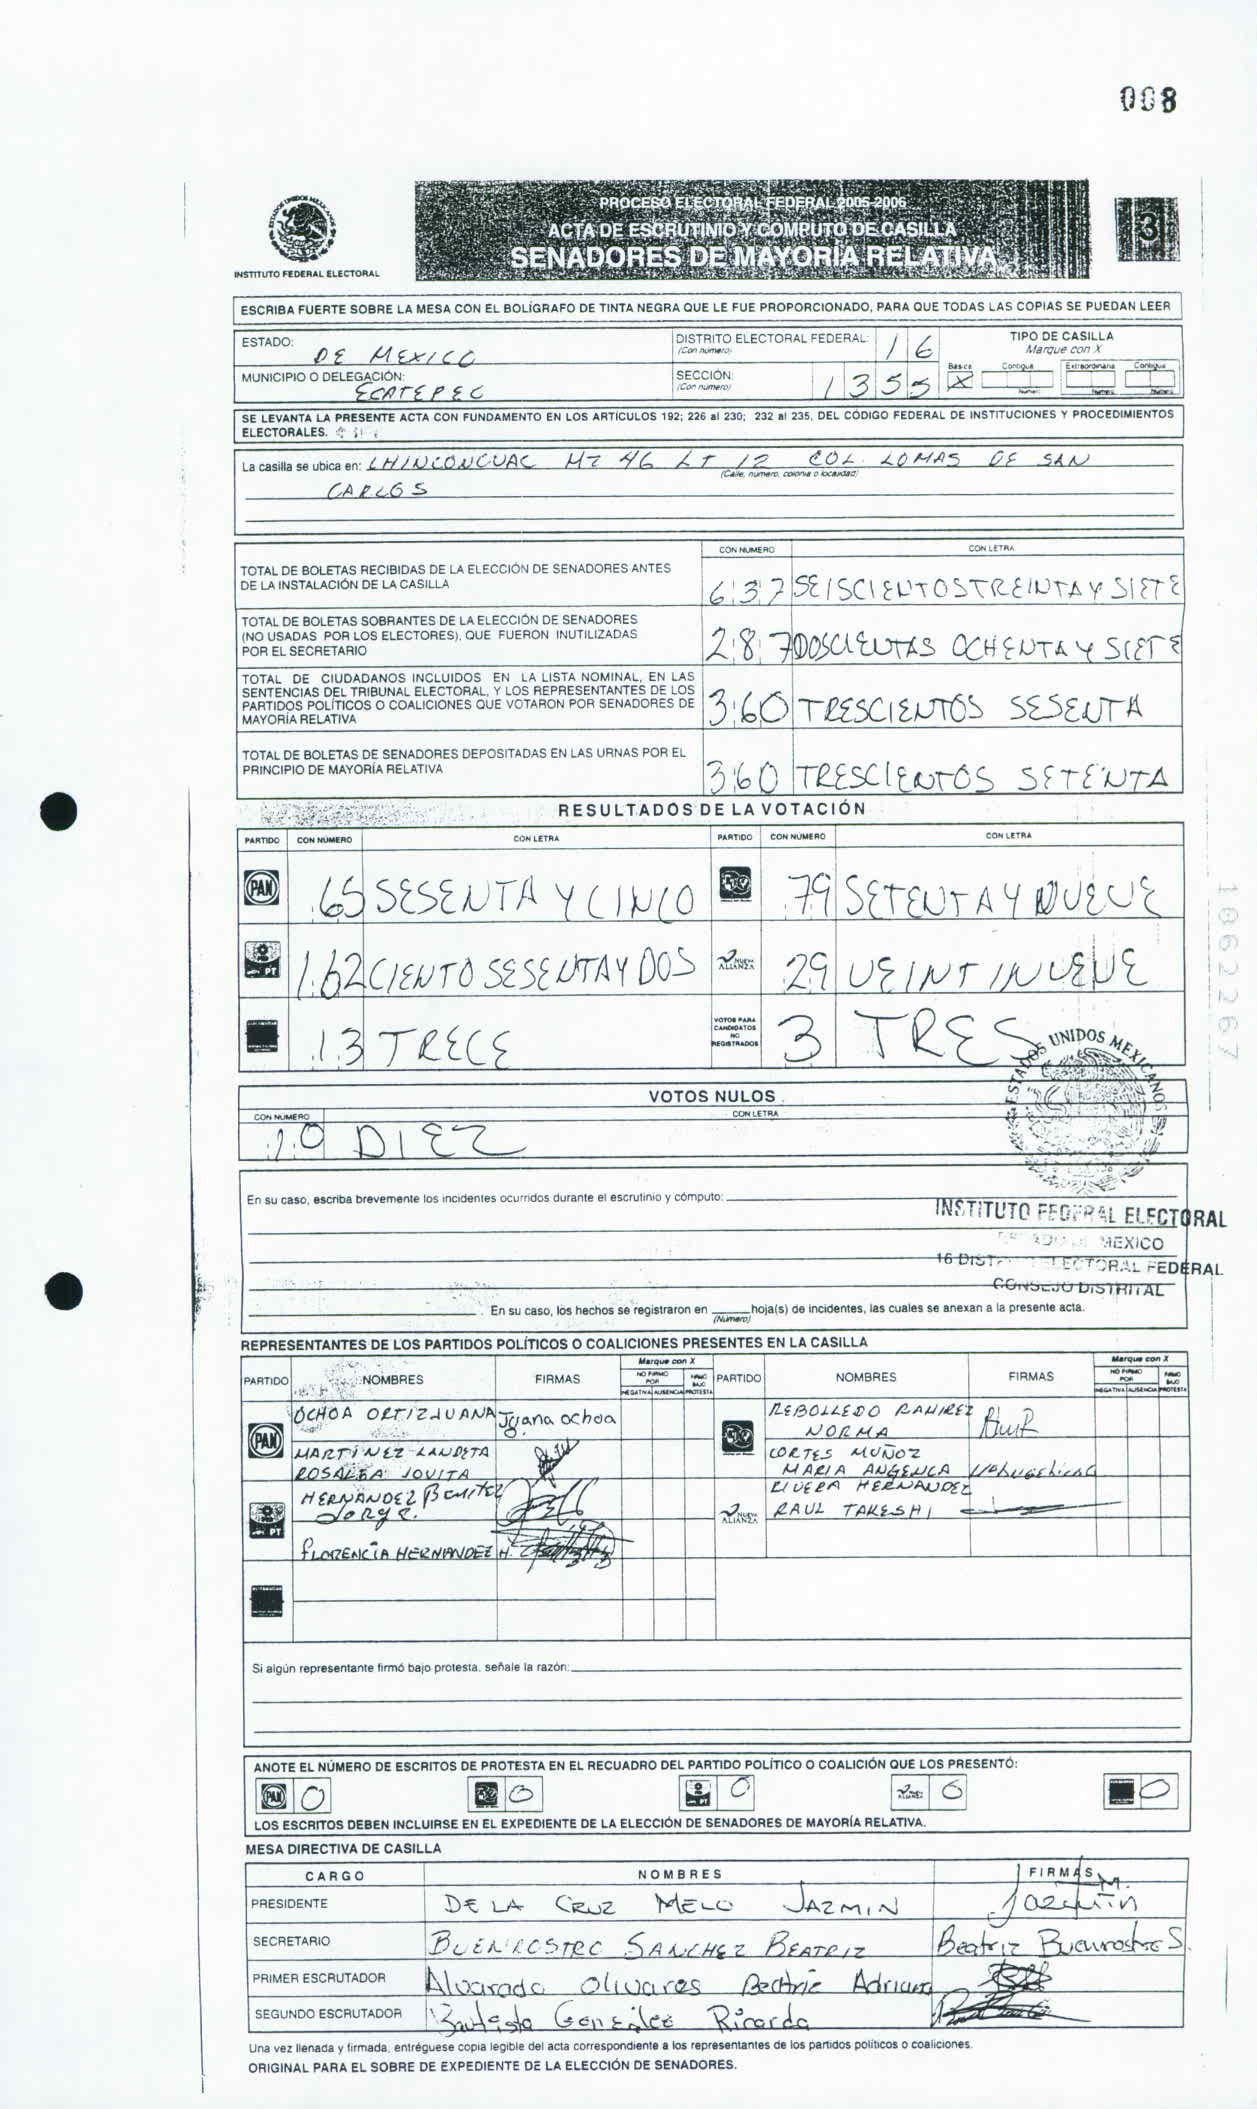 008
INSTITUTO FEDERAL ELECTORAL
PROCESO ELECTORAL FEDERAL 2005-2006
ACTA DE ESCRUTINIO Y CÓMPUTO DE CASILLA
SENADORES DE MAYORÍA RELATIVA
3
ESCRIBA FUERTE SOBRE LA MESA CON EL BOLÍGRAFO DE TINTA NEGRA QUE LE FUE PROPORCIONADO, PARA QUE TODAS LAS COPIAS SE PUEDAN LEER
ESTADO: DE MEXICO
DISTRITO ELECTORAL FEDERAL: (Con número) 16
TIPO DE CASILLA
Marque con X
MUNICIPIO O DELEGACIÓN: ECATEPEC
SECCIÓN: (Con número) 1355
Básica X Contigua Número Extraordinaria Número Contigua Número
SE LEVANTA LA PRESENTE ACTA CON FUNDAMENTO EN LOS ARTÍCULOS 192; 226 al 230; 232 al 235, DEL CÓDIGO FEDERAL DE INSTITUCIONES Y PROCEDIMIENTOS
ELECTORALES.
La casilla se ubica en: CHINCONCUAC MZ 46 LT 12 COL. LOMAS DE SAN
(Calle, número, colonia o localidad)
CARLOS
CON NÚMERO CON LETRA
TOTAL DE BOLETAS RECIBIDAS DE LA ELECCIÓN DE SENADORES ANTES
DE LA INSTALACIÓN DE LA CASILLA
637 SEISCIENTOSTREINTA Y SIETE
TOTAL DE BOLETAS SOBRANTES DE LA ELECCIÓN DE SENADORES
(NO USADAS POR LOS ELECTORES), QUE FUERON INUTILIZADAS
POR EL SECRETARIO
287 DOSCIENTAS OCHENTA Y SIETE
TOTAL DE CIUDADANOS INCLUIDOS EN LA LISTA NOMINAL, EN LAS
SENTENCIAS DEL TRIBUNAL ELECTORAL, Y LOS REPRESENTANTES DE LOS
PARTIDOS POLÍTICOS O COALICIONES QUE VOTARON POR SENADORES DE
MAYORÍA RELATIVA
360 TRESCIENTOS SESENTA
TOTAL DE BOLETAS DE SENADORES DEPOSITADAS EN LAS URNAS POR EL
PRINCIPIO DE MAYORÍA RELATIVA
360 TRESCIENTOS SETENTA
RESULTADOS DE LA VOTACIÓN
PARTIDO CON NÚMERO CON LETRA PARTIDO CON NÚMERO CON LETRA
PAN 65 SESENTA Y CINCO 79 SETENTA Y NUEVE
PT 162 CIENTO SESENTA Y DOS NUEVA ALIANZA 29 VEINTINUEVE
13 TRECE VOTOS PARA CANDIDATOS NO REGISTRADOS 3 TRES
VOTOS NULOS
CON NÚMERO CON LETRA
10 DIEZ
ESTADOS UNIDOS MEXICANOS
En su caso, escriba brevemente los incidentes ocurridos durante el escrutinio y cómputo:
INSTITUTO FEDERAL ELECTORAL
ESTADO DE MEXICO
16 DISTRITO ELECTORAL FEDERAL
CONSEJO DISTRITAL
En su caso, los hechos se registraron en hoja(s) de incidentes, las cuales se anexan a la presente acta.
(Número)
1862267
REPRESENTANTES DE LOS PARTIDOS POLÍTICOS O COALICIONES PRESENTES EN LA CASILLA
PARTIDO NOMBRES FIRMAS Marque con X NO FIRMÓ POR NEGATIVA AUSENCIA FIRMÓ BAJO PROTESTA
PARTIDO NOMBRES FIRMAS Marque con X NO FIRMÓ POR NEGATIVA AUSENCIA FIRMÓ BAJO PROTESTA
PAN OCHOA ORTIZ JUANA Juana ochoa
MARTINEZ LANDETA
ROSALBA JOVITA
REBOLLEDO RAMIREZ
NORMA
CORTES MUÑOZ
MARIA ANGELICA
PT HERNANDEZ Benitez
Jorge.
FLORENCIA HERNANDEZ H.
NUEVA ALIANZA RIVERA HERNANDEZ
RAUL TAKESHI
Si algún representante firmó bajo protesta, señale la razón:
ANOTE EL NÚMERO DE ESCRITOS DE PROTESTA EN EL RECUADRO DEL PARTIDO POLÍTICO O COALICIÓN QUE LOS PRESENTÓ:
PAN 0 0 PT 0 NUEVA ALIANZA 0 0
LOS ESCRITOS DEBEN INCLUIRSE EN EL EXPEDIENTE DE LA ELECCIÓN DE SENADORES DE MAYORÍA RELATIVA.
MESA DIRECTIVA DE CASILLA
CARGO NOMBRES FIRMAS
PRESIDENTE DE LA CRUZ MELO JAZMIN Jazmin M.
SECRETARIO BUENROSTRO SANCHEZ BEATRIZ Beatriz Buenrostro S.
PRIMER ESCRUTADOR Alvarado Olivares Beatriz Adriana
SEGUNDO ESCRUTADOR Bautista González Ricardo
Una vez llenada y firmada, entréguese copia legible del acta correspondiente a los representantes de los partidos políticos o coaliciones.
ORIGINAL PARA EL SOBRE DE EXPEDIENTE DE LA ELECCIÓN DE SENADORES.